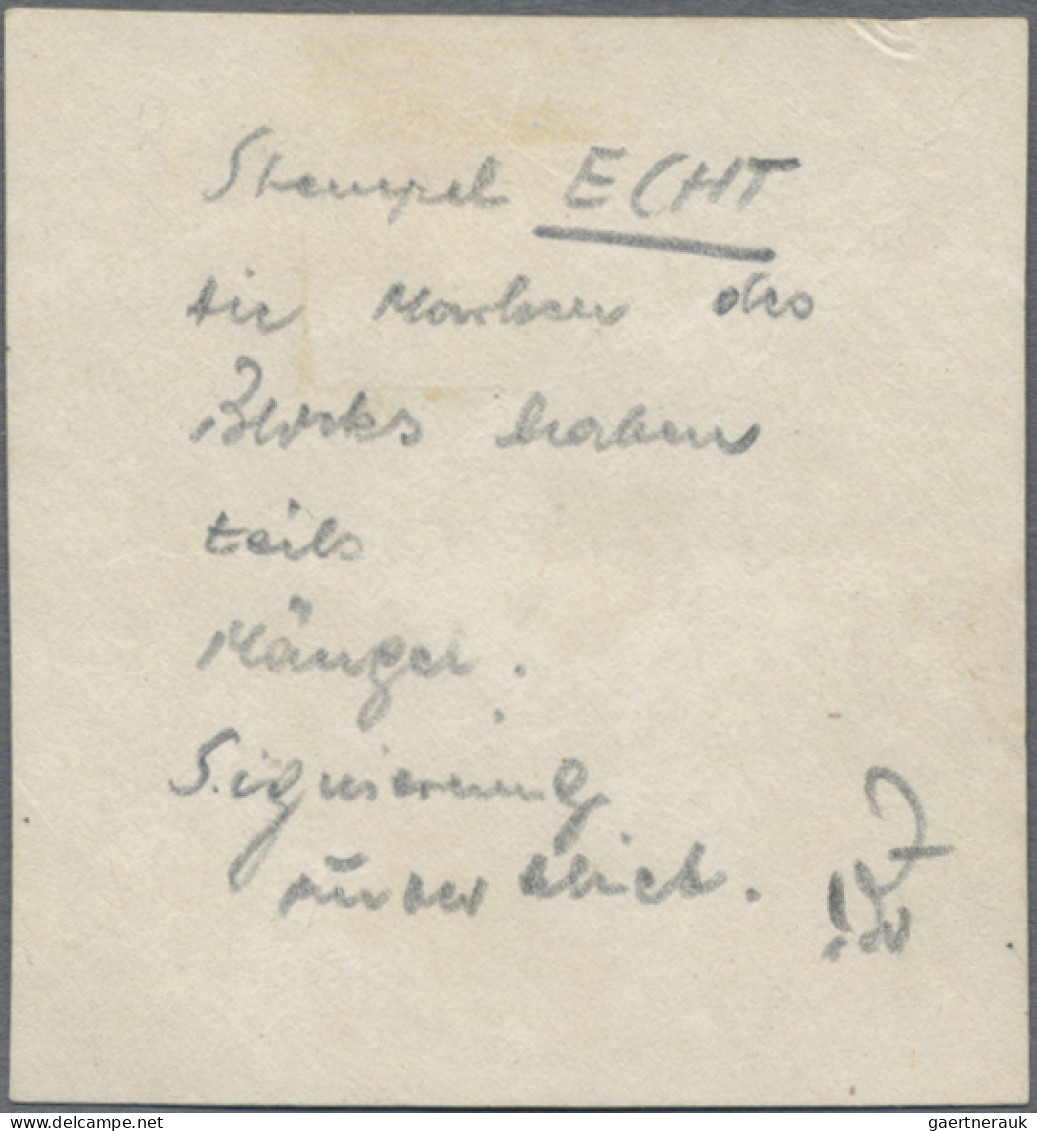 Stempel ECHT
die Marken des
Blocks haben
teils
Mängel.
Signierung
unterblieb.
DELCAMPE.NET
gaertnerauk